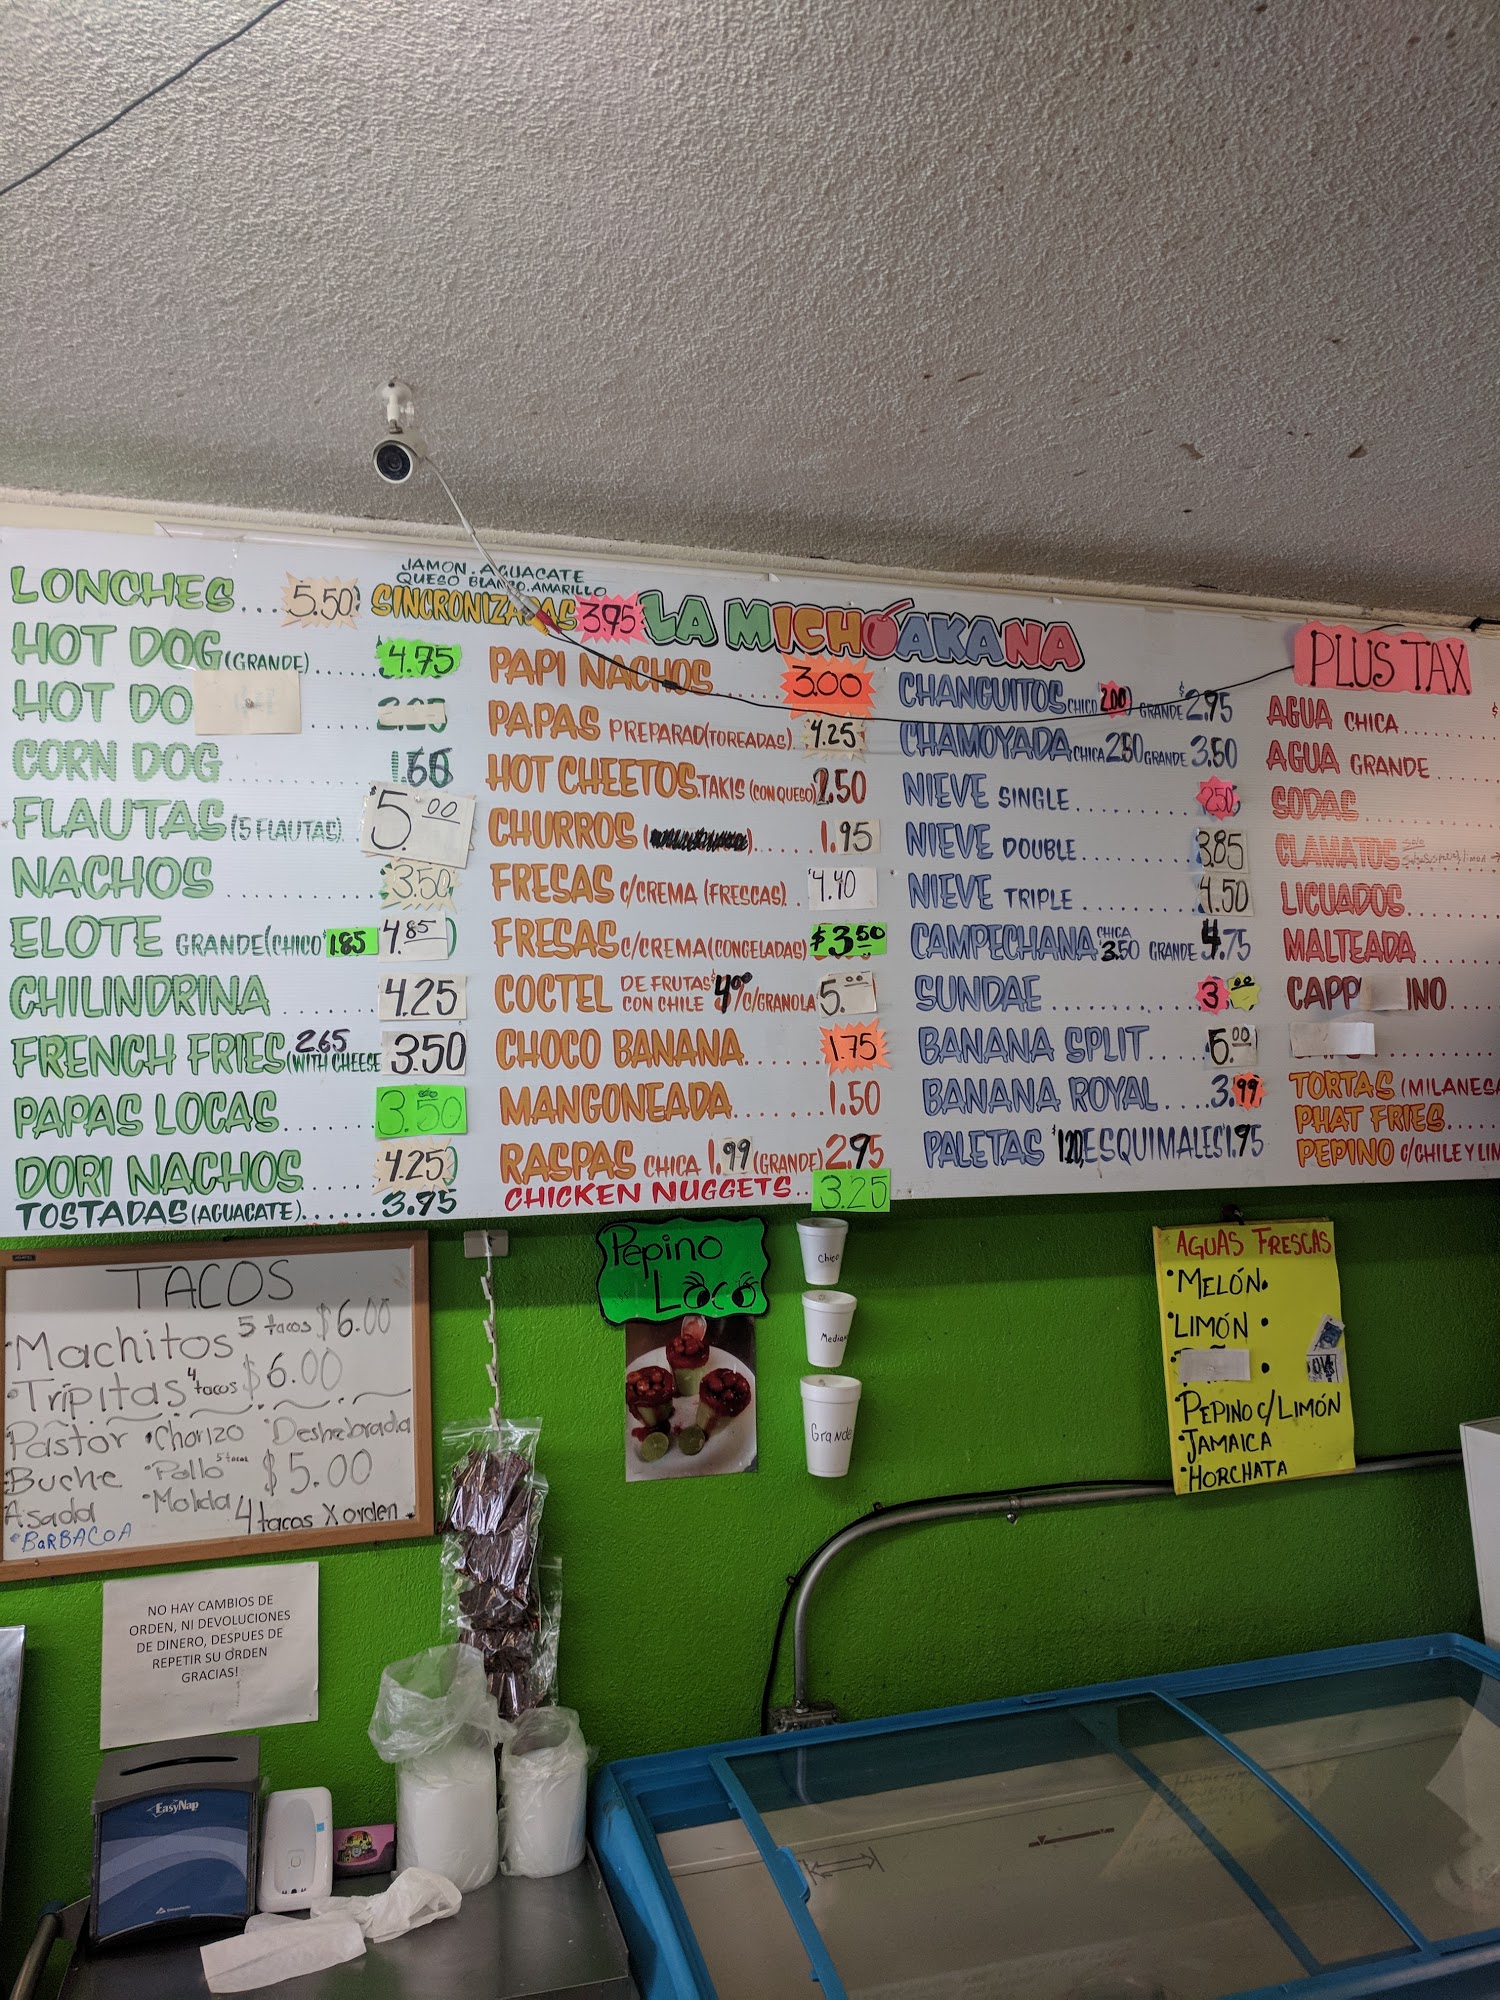 LONCHES.... 5.50
HOT DOG (GRANDE)...... 4.75
HOT DO ......
CORN DOG ......
FLAUTAS (5 FLAUTAS) 5.00
NACHOS ...... 3.50
ELOTE GRANDE (CHICO 1.85 4.85)
CHILINDRINA ...... 4.25
FRENCH FRIES 2.65 (WITH CHEESE 3.50
PAPAS LOCAS...... 3.50
DORI NACHOS.... 4.25
TOSTADAS (AGUACATE)...... 3.95
JAMON. AGUACATE
QUESO BLANCO. AMARILLO
SINCRONIZADAS 3.95
LA MICHOAKANA
PAPI NACHOS ...... 3.00
PAPAS PREPARAD (TOREADAS) 4.25
HOT CHEETOS. TAKIS (CON QUESO) 2.50
CHURROS ( )..... 1.95
FRESAS C/CREMA (FRESCAS). $4.40
FRESAS C/CREMA (CONGELADAS) $3.50
COCTEL DE FRUTAS $4.00 CON CHILE /C/GRANOLA 5.00
CHOCO BANANA...... 1.75
MANGONEADA...... 1.50
RASPAS CHICA 1.99 (GRANDE) 2.95
CHICKEN NUGGETS.. 3.25
CHANGUITOS CHICO 2.00 GRANDE $2.95
CHAMOYADA CHICA 2.50 GRANDE 3.50
NIEVE SINGLE ........ 2.50
NIEVE DOUBLE........ 3.85
NIEVE TRIPLE........ 4.50
CAMPECHANA CHICA 3.50 GRANDE 4.75
SUNDAE ........ 3.00
BANANA SPLIT.... 5.00
BANANA ROYAL.... 3.99
PALETAS $1.20, ESQUIMALES $1.95
PLUS TAX
AGUA CHICA......
AGUA GRANDE....
SODAS ........
CLAMATOS
LICUADOS......
MALTEADA ....
CAPP INO ....
TORTAS (MILANESA
PHAT FRIES.....
PEPINO C/CHILE Y LIM
TACOS
•Machitos 5 tacos $6.00
•Tripitas 4 tacos $6.00
Pastor •Chorizo •Deshebrada
Buche •Pollo 5 tacos $5.00
Asada •Molida 4 tacos X orden.
•BaRBACOA
NO HAY CAMBIOS DE
ORDEN, NI DEVOLUCIONES
DE DINERO, DESPUES DE
REPETIR SU ORDEN
GRACIAS!
Pepino
Loco
Chico
Mediano
Grande
AGUAS FRESCAS
•MELÓN•
•LIMÓN •
•PEPINO C/LIMÓN
•JAMAICA
•HORCHATA
EasyNap